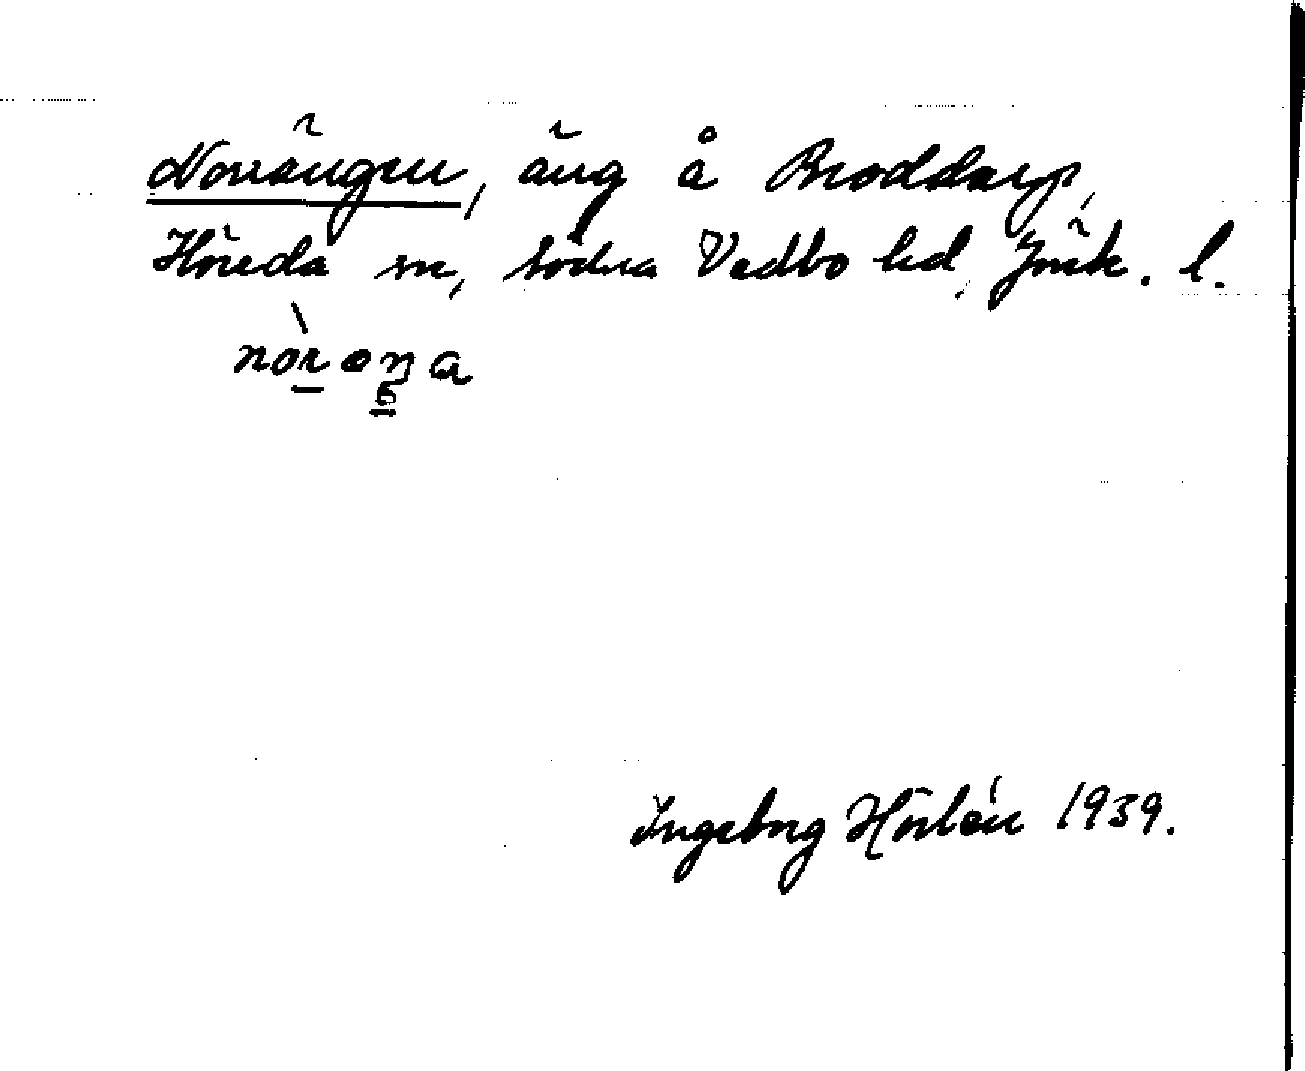 Norrängen, äng å Broddarp,
Höreda sn, Södra Vedbo hd, Jönk. l.
nòrəŋa
Ingeborg Hörlén 1939.